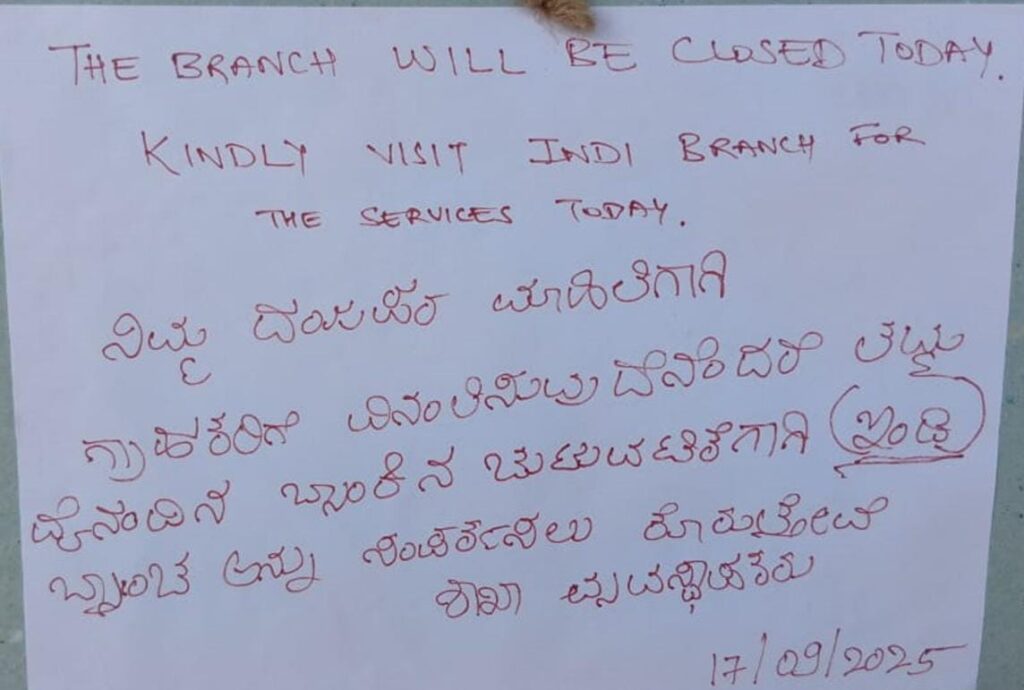 THE BRANCH WILL BE CLOSED TODAY.
KINDLY VISIT INDI BRANCH FOR
THE SERVICES TODAY.
ನಿಮ್ಮ ದಯಪರ ಮಾಹಿತಿಗಾಗಿ
ಗ್ರಾಹಕರಿಗೆ ವಿನಂತಿಸುವುದೇನೆಂದರೆ ತಮ್ಮ
ದೈನಂದಿನ ಬ್ಯಾಂಕಿನ ಚಟುವಟಿಕೆಗಾಗಿ ಇಂಡಿ
ಬ್ರಾಂಚ ಅನ್ನು ಸಂಪರ್ಕಿಸಲು ಕೋರುತ್ತೇವೆ
ಶಾಖಾ ವ್ಯವಸ್ಥಾಪಕರು
17/09/2025